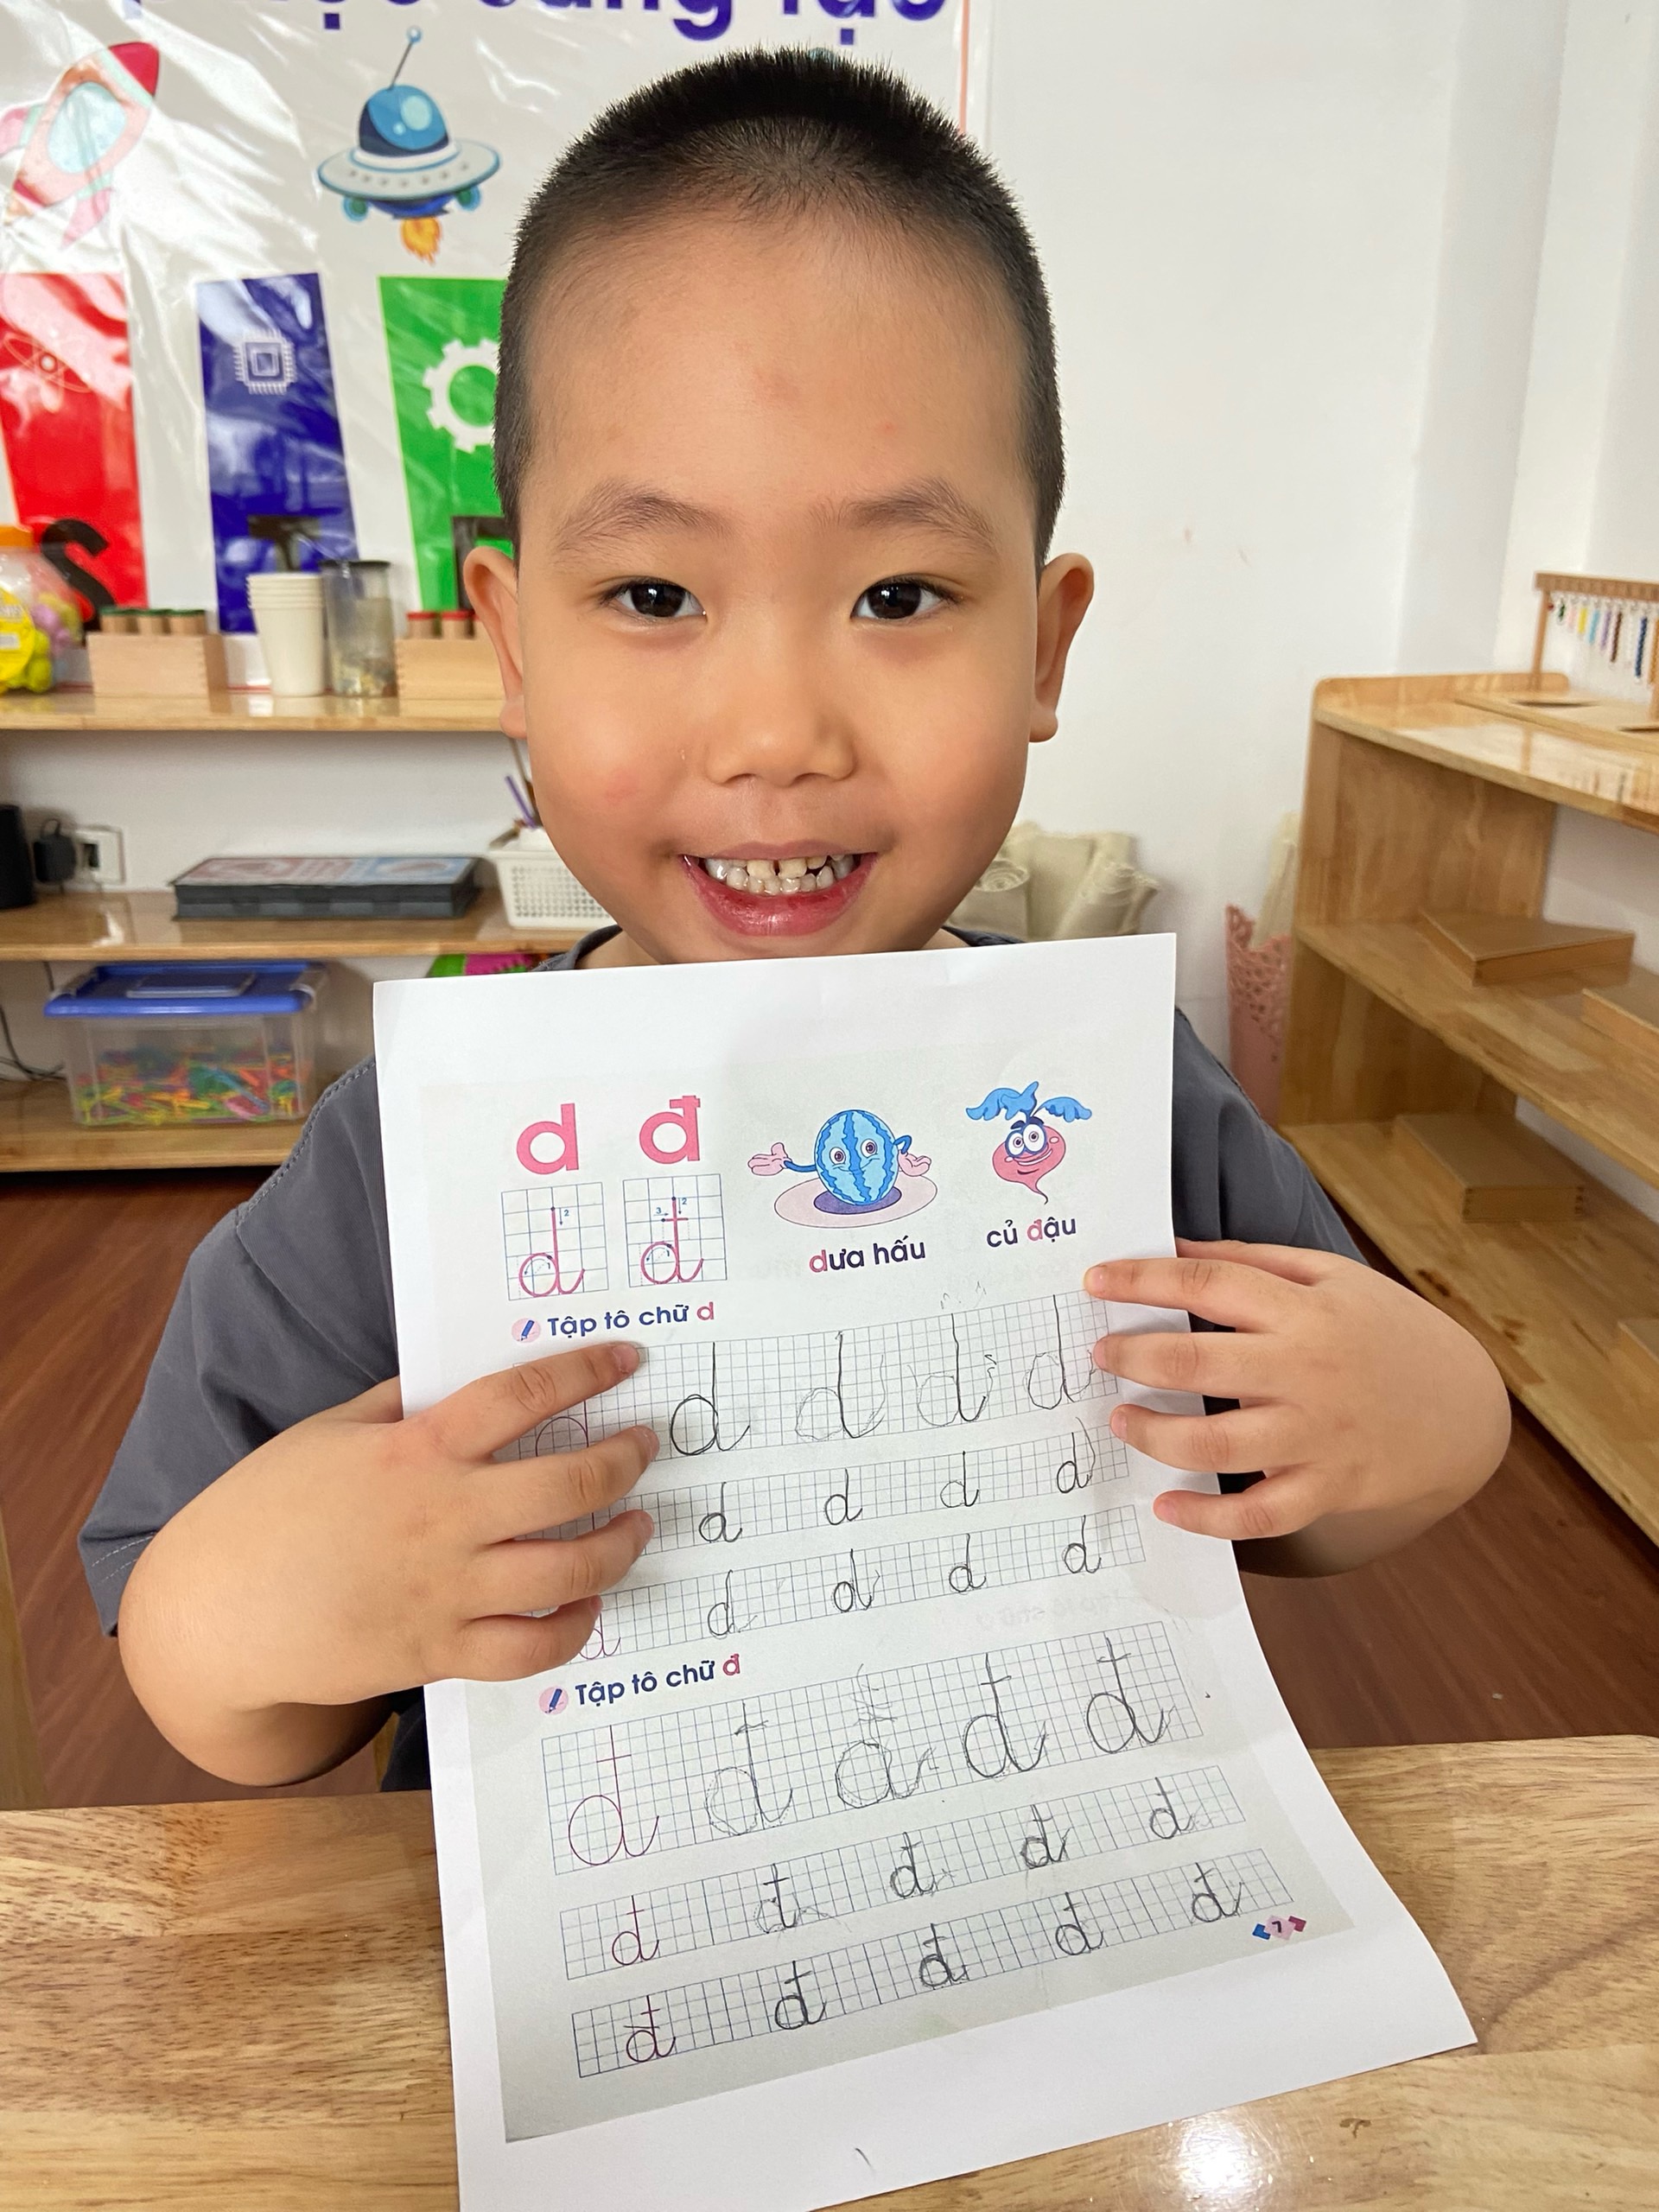 d đ
2 3 2
dưa hấu củ đậu
Tập tô chữ d
d d d d d
d d d d
d d d d d
Tập tô chữ đ
đ đ đ đ đ
đ đ đ đ đ
đ đ đ đ đ
7